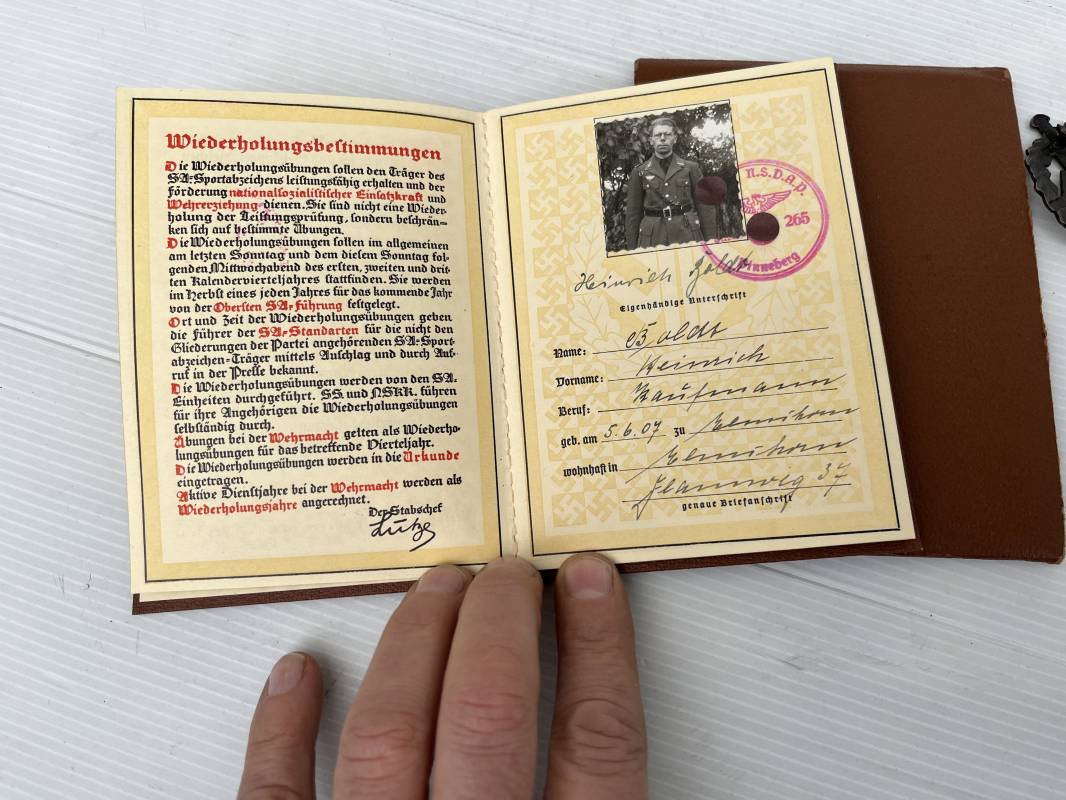 Wiederholungsbestimmungen
Die Wiederholungsübungen sollen den Träger des
SA-Sportabzeichens leistungsfähig erhalten und der
Förderung nationalsozialistischer Einsatzkraft und
Wehrerziehung dienen. Sie sind nicht eine Wieder-
holung der Leistungsprüfung, sondern beschrän-
ken sich auf bestimmte Übungen.
Die Wiederholungsübungen sollen im allgemeinen
am letzten Sonntag und dem diesem Sonntag fol-
genden Mittwochabend des ersten, zweiten und drit-
ten Kalendervierteljahres stattfinden. Sie werden
im Herbst eines jeden Jahres für das kommende Jahr
von der Obersten SA-Führung festgelegt.
Ort und Zeit der Wiederholungsübungen geben
die Führer der SA-Standarten für die nicht den
Gliederungen der Partei angehörenden SA-Sport-
abzeichen-Träger mittels Anschlag und durch Auf-
ruf in der Presse bekannt.
Die Wiederholungsübungen werden von den SA-
Einheiten durchgeführt. SS und NSKK. führen
für ihre Angehörigen die Wiederholungsübungen
selbständig durch.
Übungen bei der Wehrmacht gelten als Wiederho-
lungsübungen für das betreffende Vierteljahr.
Die Wiederholungsübungen werden in die Urkunde
eingetragen.
Aktive Dienstjahre bei der Wehrmacht werden als
Wiederholungsjahre angerechnet.
Der Stabschef
Lutze
N.S.D.A.P.
265
Pinneberg
Heinrich Boldt
Eigenhändige Unterschrift
Name: Boldt
Vorname: Heinrich
Beruf: Kaufmann
geb. am 5.6.07 zu Elmshorn
wohnhaft in Elmshorn
37
genaue Briefanschrift